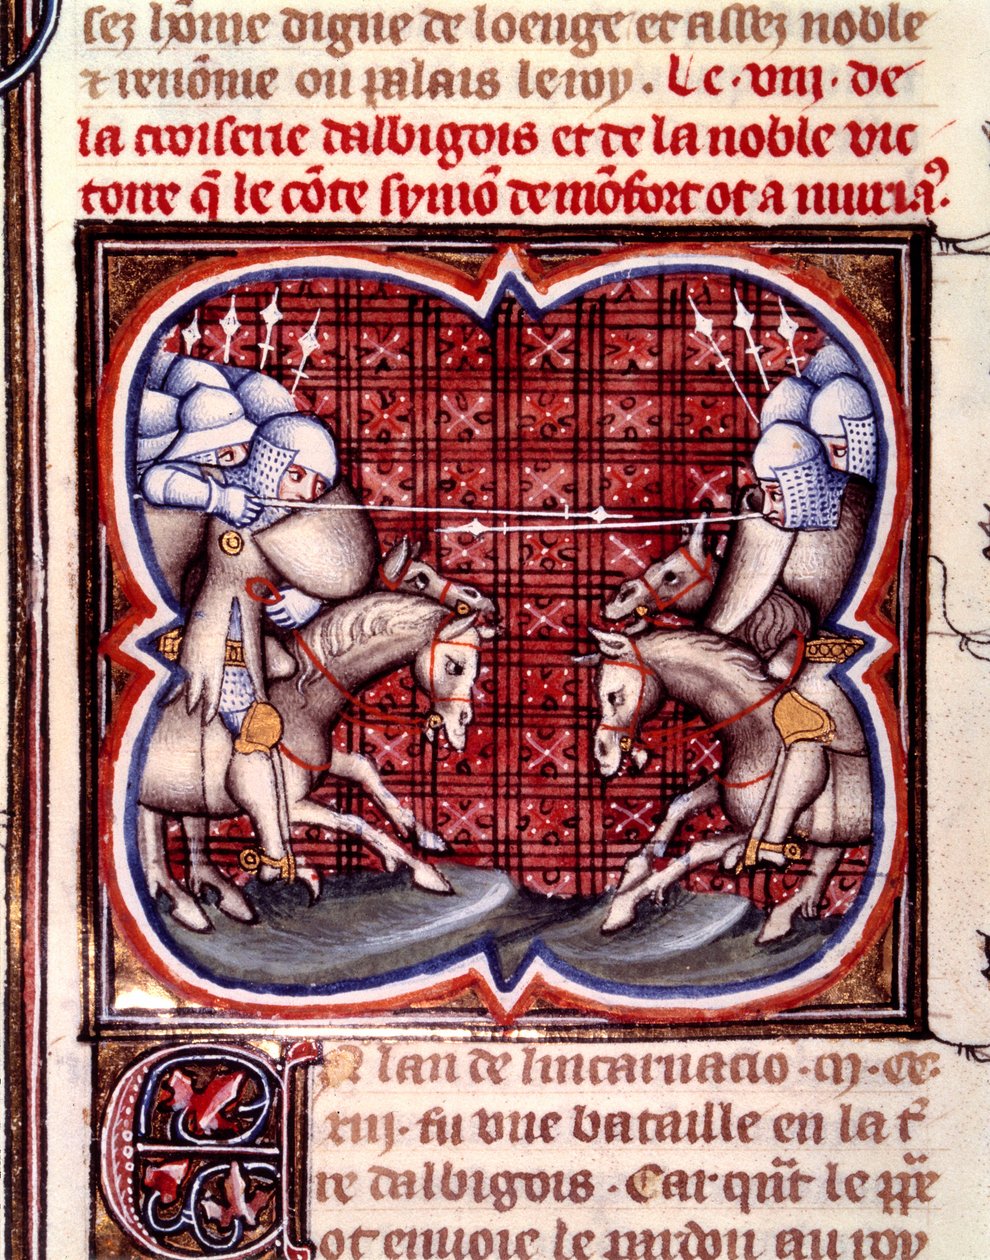 sez hõme digne de loenge et assez noble
⁊ renõme ou palais le roy. Le .viii. de
la croiserie dalbigois et de la noble vic
toire q̃ le cõte symõ de mõfort ot a muria᷒.
En lan de lincarnacio .m. cc.
xiii. fu une bataille en la t᷒
re dalbigois. Car qũt le pp̃e
ot envoie le pardon au roy